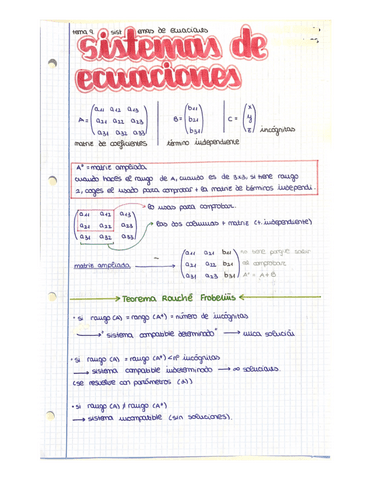 tema 9. sistemas de ecuaciones
sistemas de
ecuaciones
A = ( a11 a12 a13 | B = ( b11 | C = ( x
a21 a22 a23 | b21 | y
a31 a32 a33 ) | b31 ) | z ) incógnitas
matriz de coeficientes término independiente
A* = matriz ampliada.
cuando haces el rango de A, cuando es de 3x3, si tiene rango
2, coges el usado para comprobar + la matriz de términos independi.
( a11 a12 a13 ) lo usas para comprobar.
a21 a22 a23 las dos columnas + matriz (t. independiente)
a31 a32 a33
matriz ampliada ( a11 a12 b11
a21 a22 b21 comprobar.
a31 a33 b31 ) A* = A + B
Teorema Rouché Frobeniüs
· si rango (A) = rango (A*) = número de incógnitas
"sistema compatible determinado" única solución
· si rango (A) = rango (A*) < nº incógnitas
sistema compatible indeterminado ∞ soluciones
(se resuelve con parámetros (λ))
· si rango (A) ≠ rango (A*)
sistema incompatible (sin soluciones).